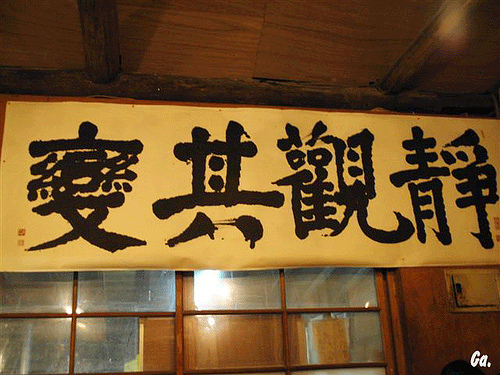 靜觀其變
Ga.